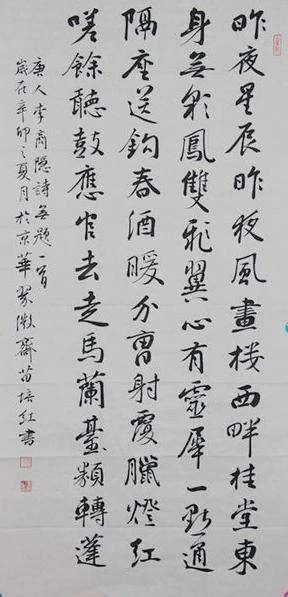 昨夜星辰昨夜風畫樓西畔桂堂東
身無彩鳳雙飛翼心有靈犀一點通
隔座送鈎春酒暖分曹射覆臘燈紅
嗟餘聽鼓應官去走馬蘭臺類轉蓬
唐人李商隱詩無題一首
歲在辛卯之夏月於京華翠微齋苗培紅書